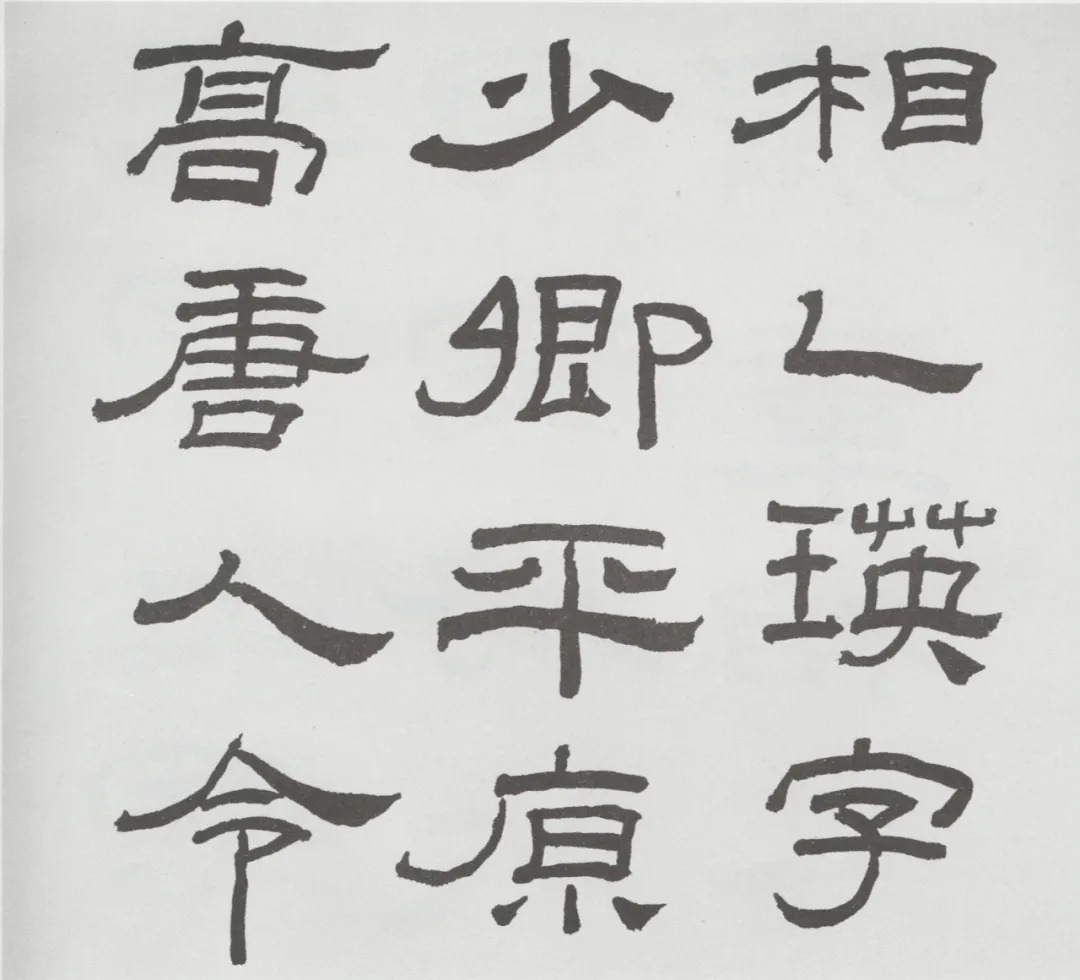 相乚瑛字
少卿平原
高唐人令